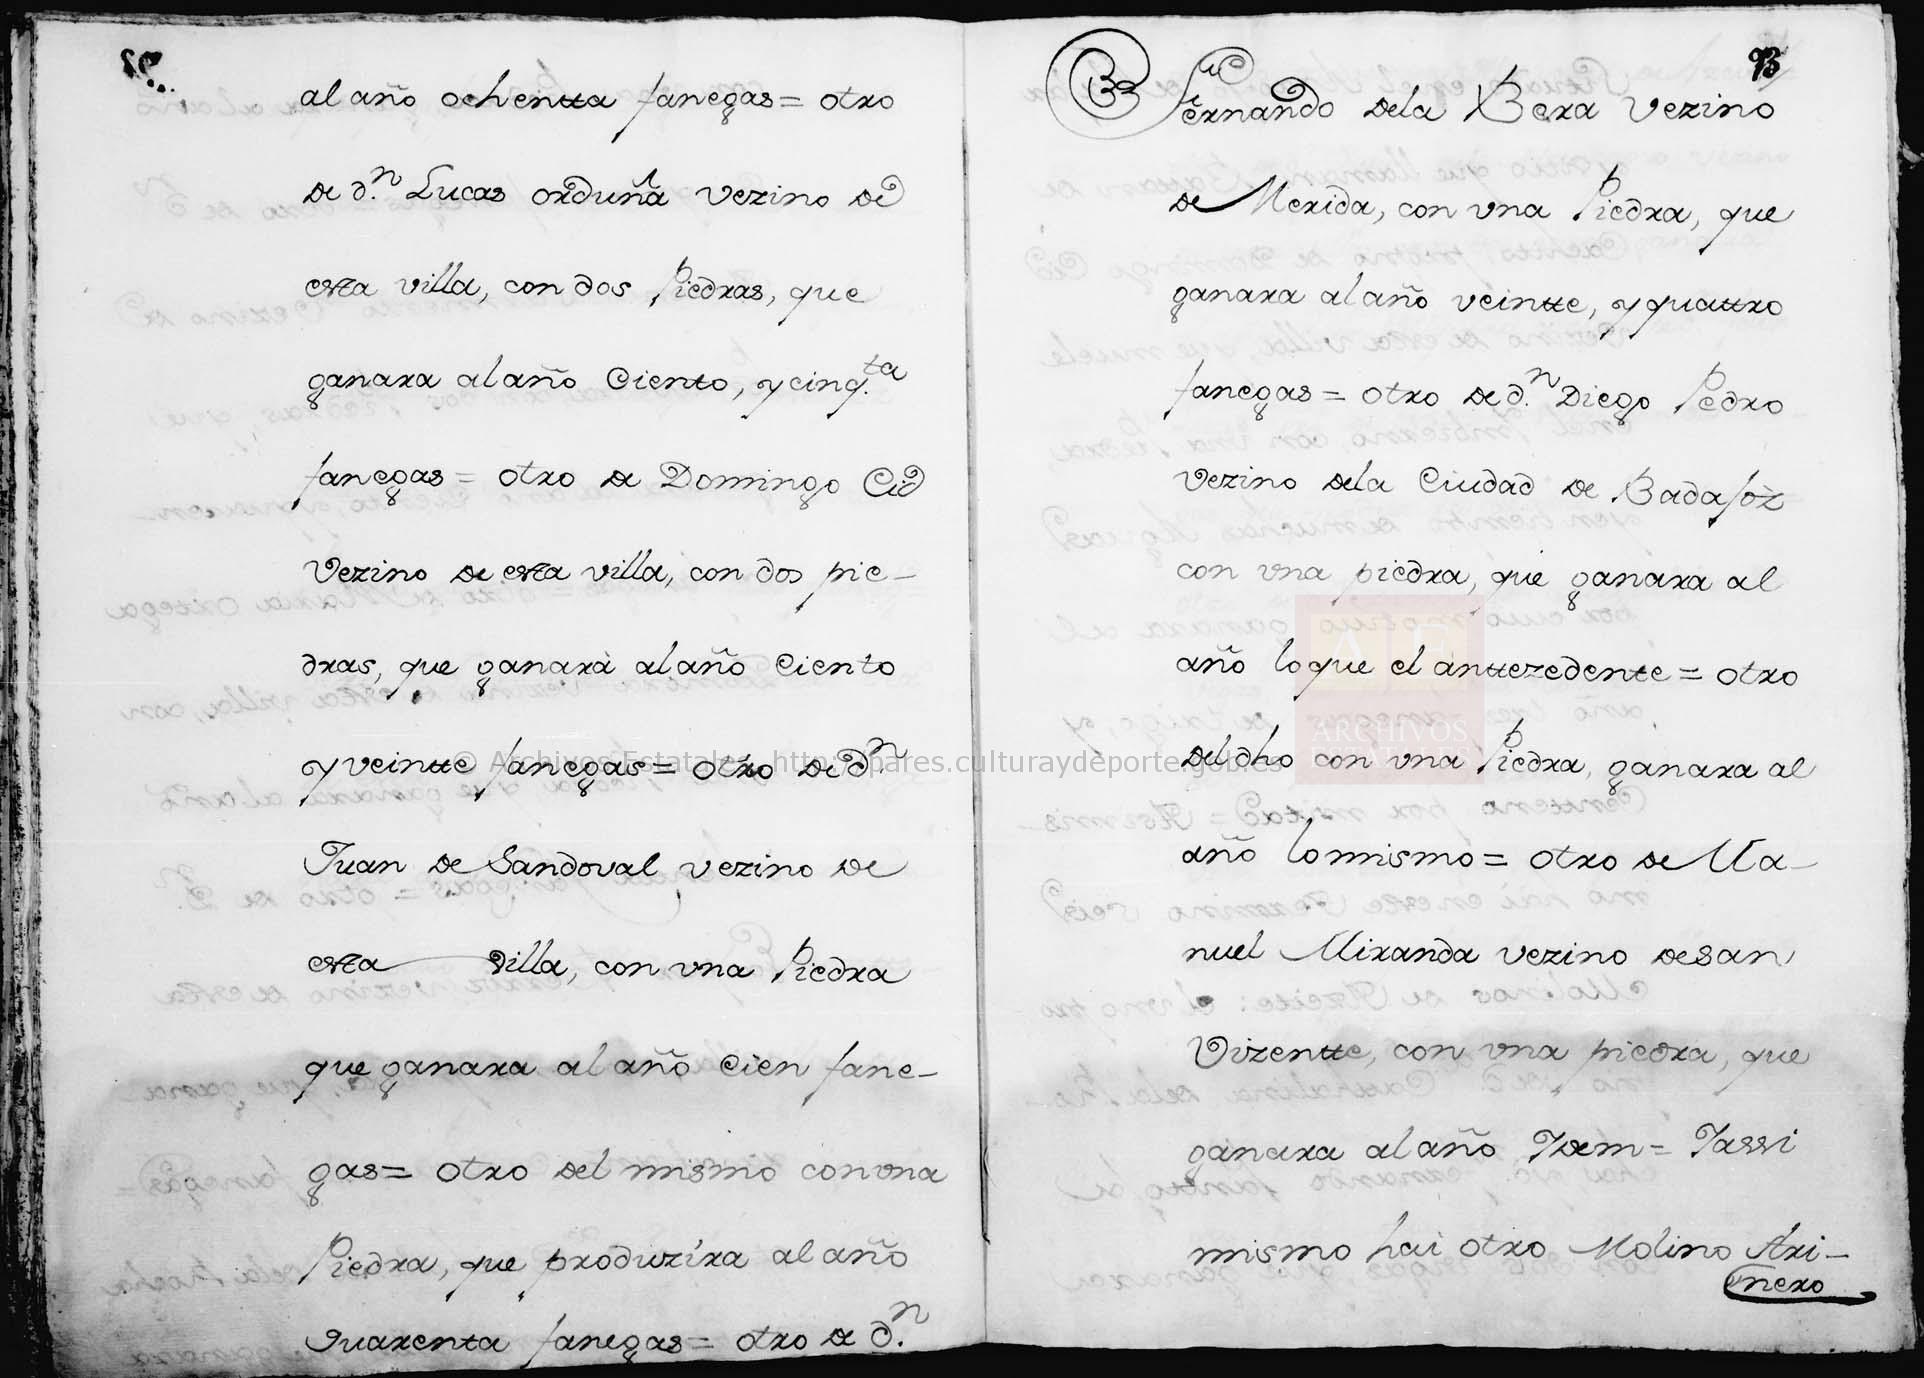 al año ochentta fanegas = otro
de d.ⁿ Lucas orduña vezino de
esta villa, con dos Piedras, que
ganara al año Ciento, y cinq.ta
fanegas = otro de Domingo Cid
Vezino de esta villa, con dos pie-
dras, que ganarà al año Ciento
y veintte fanegas = otro de dⁿ.
Juan de Sandoval vezino de
esta villa, con vna Piedra
que ganara al año Cien fane-
gas = otro del mismo con vna
Piedra, que produzira al año
quarenta fanegas = otro de d.ⁿ
93
Fernando dela Bera vezino
de Merida, con vna Piedra, que
ganara al año veintte, y quattro
fanegas = otro de d.ⁿ Diego Pedro
vezino dela Ciudad de Badajòz
con vna piedra, que ganara al
año lo que el anttezedente = otro
del dho con vna Piedra, ganara al
año lo mismo = otro de Ma-
nuel Miranda vezino de san
Vizentte, con vna piedra, que
ganara al año Idem = Iassi
mismo hai otro Molino Ari-
nero
AE
ARCHIVOS
ESTATALES
© Archivos Estatales, http://pares.culturaydeporte.gob.es